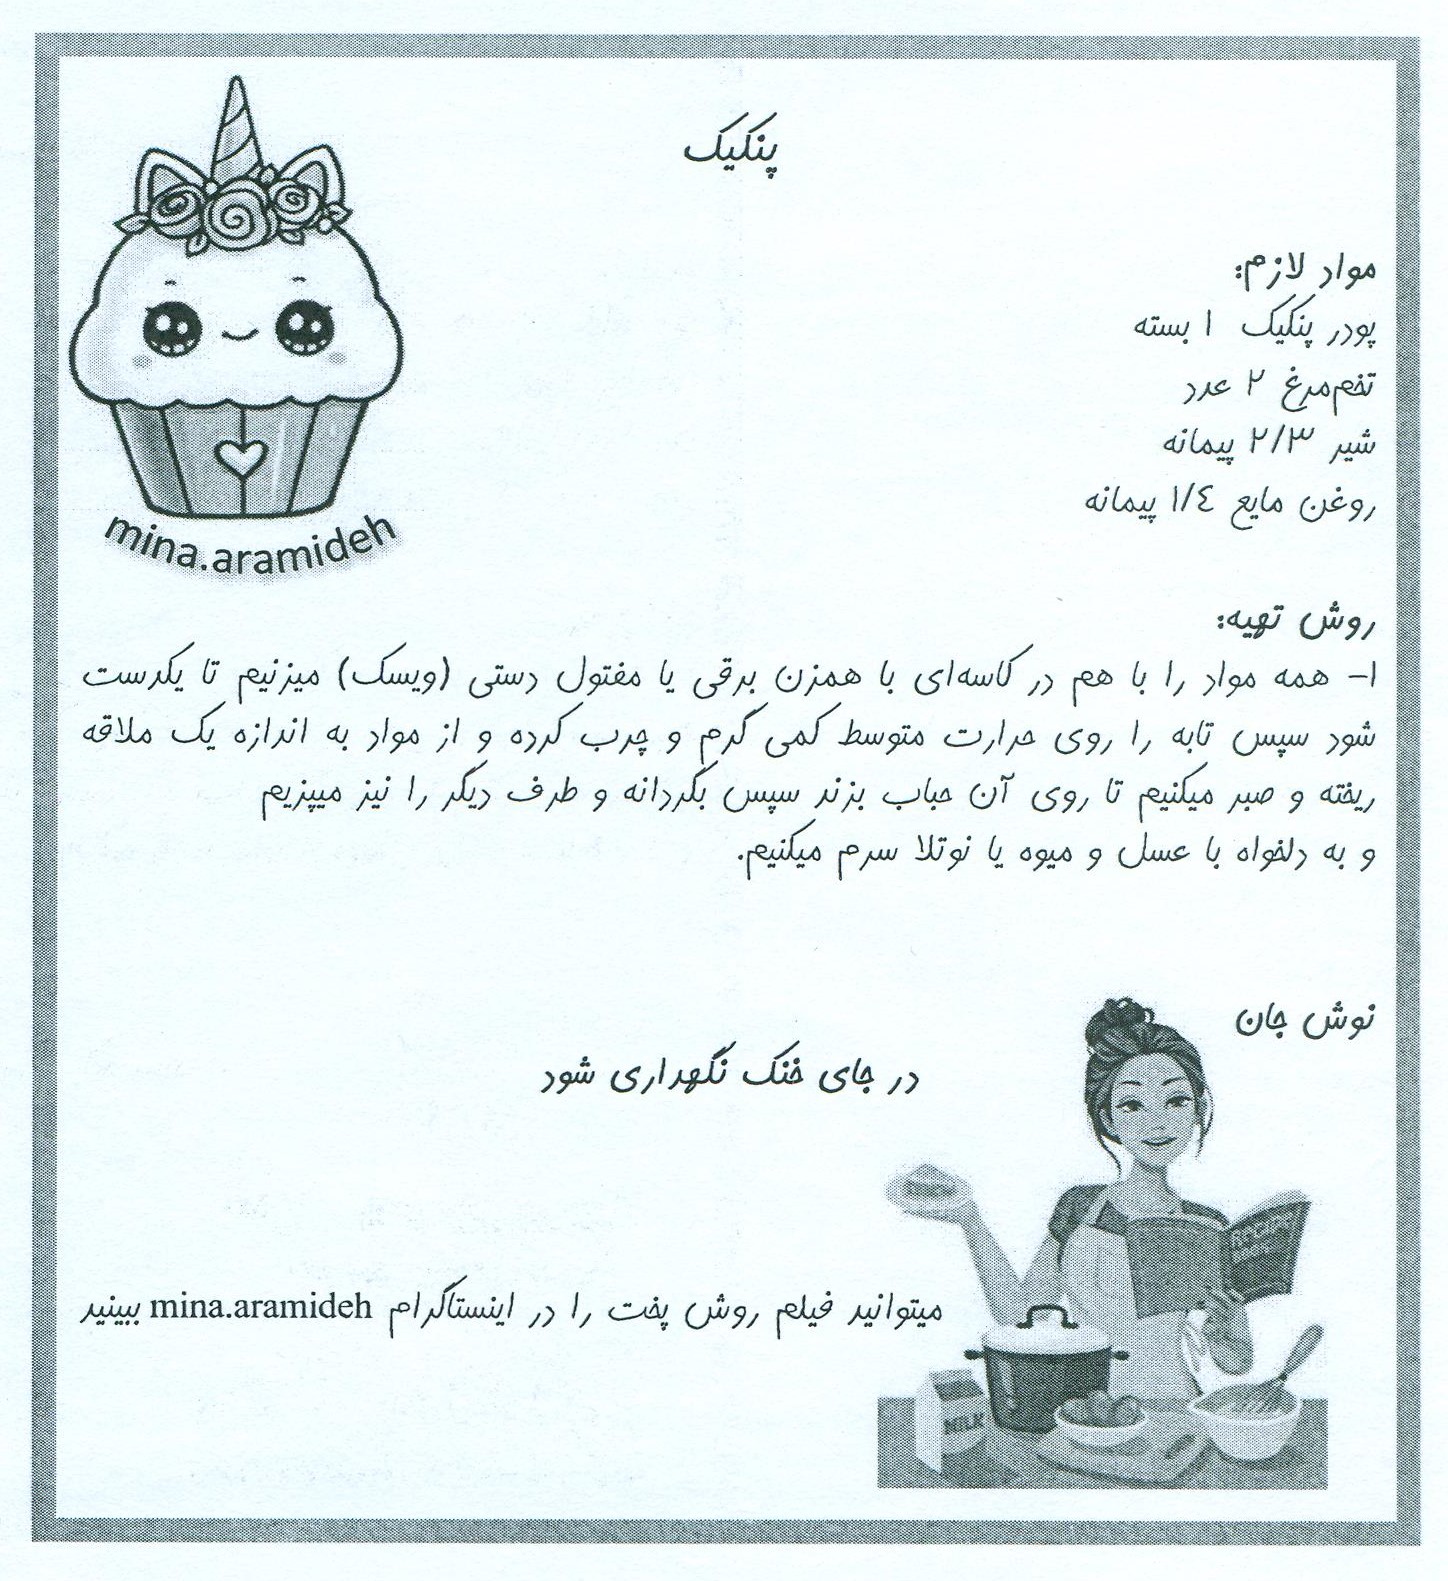 پنکیک
mina.aramideh
مواد لازم:
پودر پنکیک ۱ بسته
تخم‌مرغ ۲ عدد
شیر ۲/۳ پیمانه
روغن مایع ۱/٤ پیمانه
روش تهیه:
۱- همه مواد را با هم در کاسه‌ای با همزن برقی یا مفتول دستی (ویسک) میزنیم تا یکدست
شود سپس تابه را روی حرارت متوسط کمی گرم و چرب کرده و از مواد به اندازه یک ملاقه
ریخته و صبر میکنیم تا روی آن حباب بزند سپس بگردانه و طرف دیگر را نیز میپزیم
و به دلخواه با عسل و میوه یا نوتلا سرم میکنیم.
نوش جان
در جای خنک نگهداری شود
میتوانید فیلم روش پخت را در اینستاگرام mina.aramideh ببینید
MILK